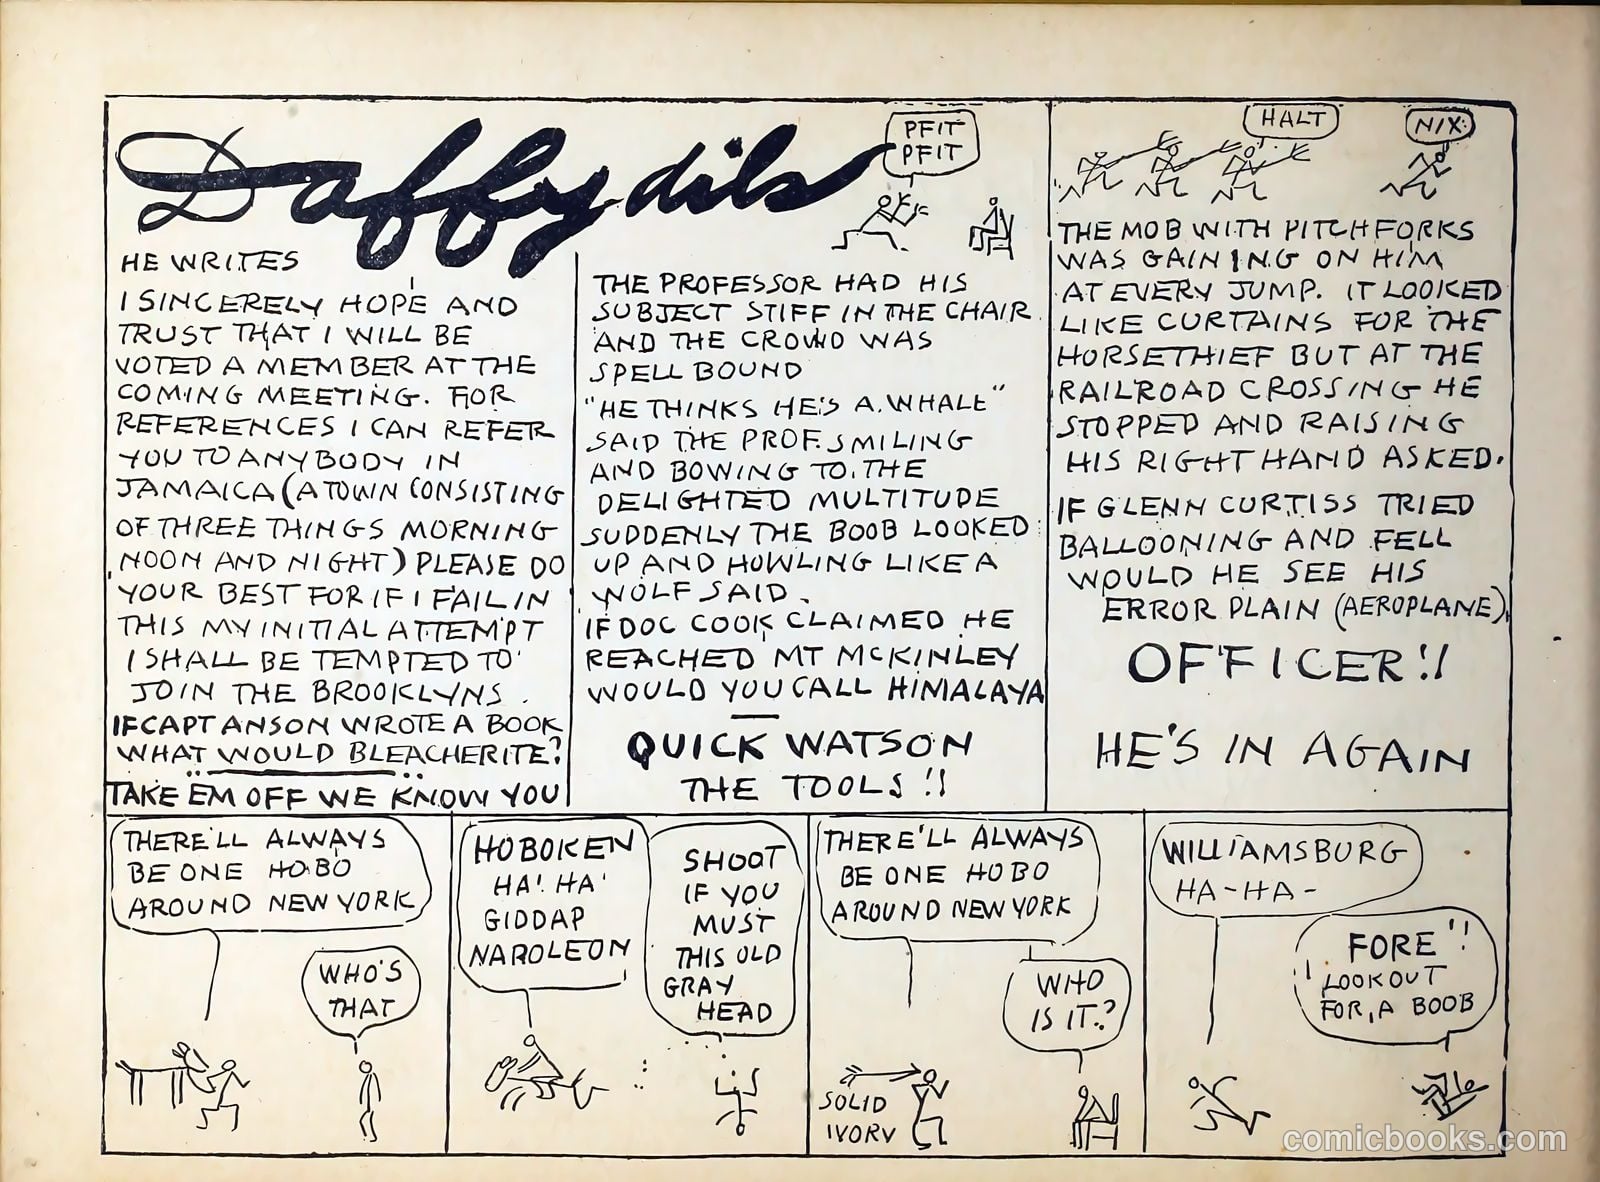 Daffydils
PFIT
PFIT
HE WRITES
I SINCERELY HOPE AND
TRUST THAT I WILL BE
VOTED A MEMBER AT THE
COMING MEETING. FOR
REFERENCES I CAN REFER
YOU TO ANYBODY IN
JAMAICA (A TOWN CONSISTING
OF THREE THINGS MORNING
NOON AND NIGHT) PLEASE DO
YOUR BEST FOR IF I FAIL IN
THIS MY INITIAL ATTEMPT
I SHALL BE TEMPTED TO
JOIN THE BROOKLYNS.
IF CAPT ANSON WROTE A BOOK
WHAT WOULD BLEACHERITE?
TAKE EM OFF WE KNOW YOU
THE PROFESSOR HAD HIS
SUBJECT STIFF IN THE CHAIR
AND THE CROWD WAS
SPELL BOUND
"HE THINKS HE'S A WHALE"
SAID THE PROF. SMILING
AND BOWING TO THE
DELIGHTED MULTITUDE
SUDDENLY THE BOOB LOOKED
UP AND HOWLING LIKE A
WOLF SAID
IF DOC COOK CLAIMED HE
REACHED MT MCKINLEY
WOULD YOU CALL HIMALAYA
QUICK WATSON
THE TOOLS!!
HALT
NIX
THE MOB WITH PITCHFORKS
WAS GAINING ON HIM
AT EVERY JUMP. IT LOOKED
LIKE CURTAINS FOR THE
HORSETHIEF BUT AT THE
RAILROAD CROSSING HE
STOPPED AND RAISING
HIS RIGHT HAND ASKED.
IF GLENN CURTISS TRIED
BALLOONING AND FELL
WOULD HE SEE HIS
ERROR PLAIN (AEROPLANE)
OFFICER!!
HE'S IN AGAIN
THERE'LL ALWAYS
BE ONE HOBO
AROUND NEW YORK
WHO'S
THAT
HOBOKEN
HA! HA!
GIDDAP
NAPOLEON
SHOOT
IF YOU
MUST
THIS OLD
GRAY
HEAD
THERE'LL ALWAYS
BE ONE HOBO
AROUND NEW YORK
WHO
IS IT?
SOLID
IVORY
WILLIAMSBURG
HA-HA-
FORE!!
LOOK OUT
FOR A BOOB
comicbooks.com